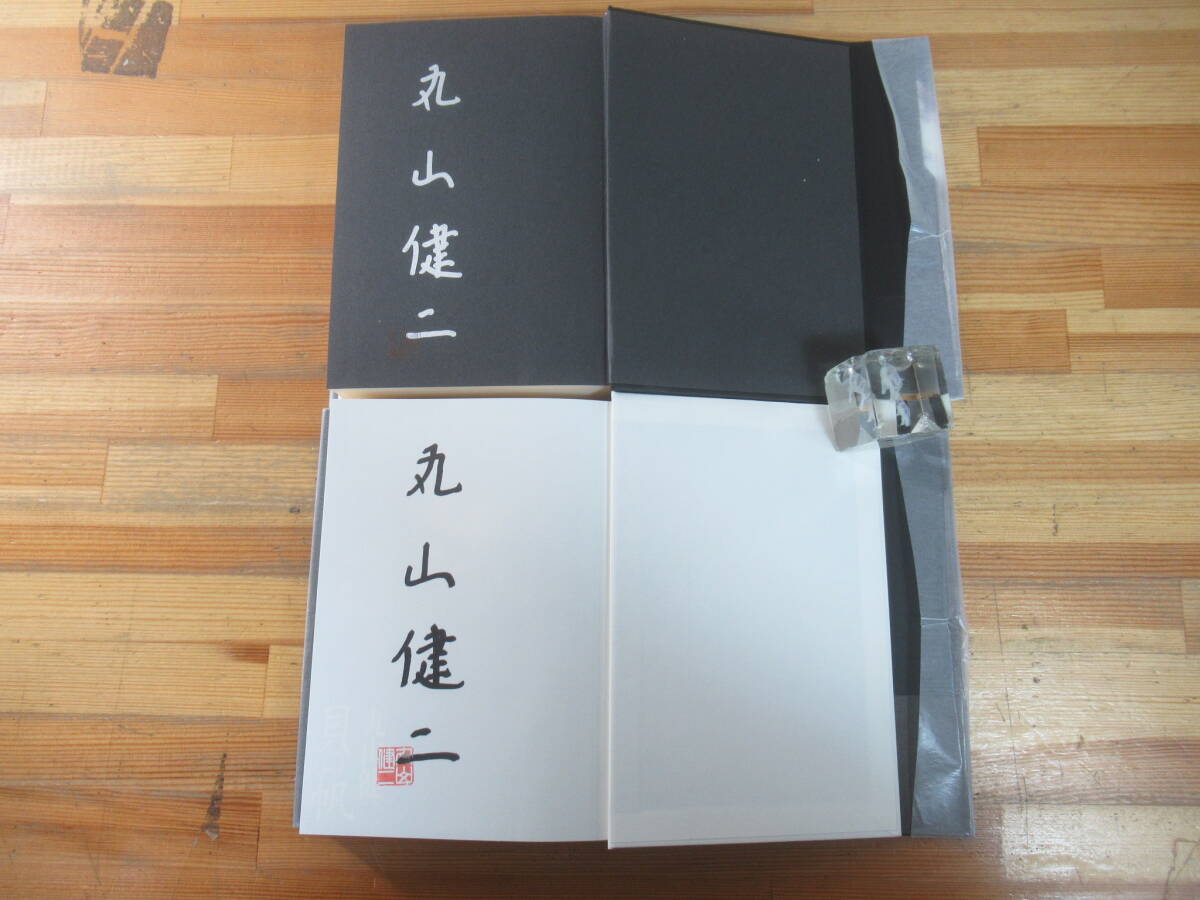 丸山健二
丸山健二